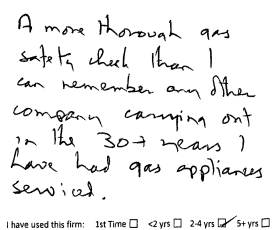 A more thorough gas
safety check than I
can remember any other
company carrying out
in the 30+ years I
have had gas appliances
serviced.
I have used this firm: 1st Time ☐ <2 yrs ☐ 2-4 yrs ☑ 5+ yrs ☐